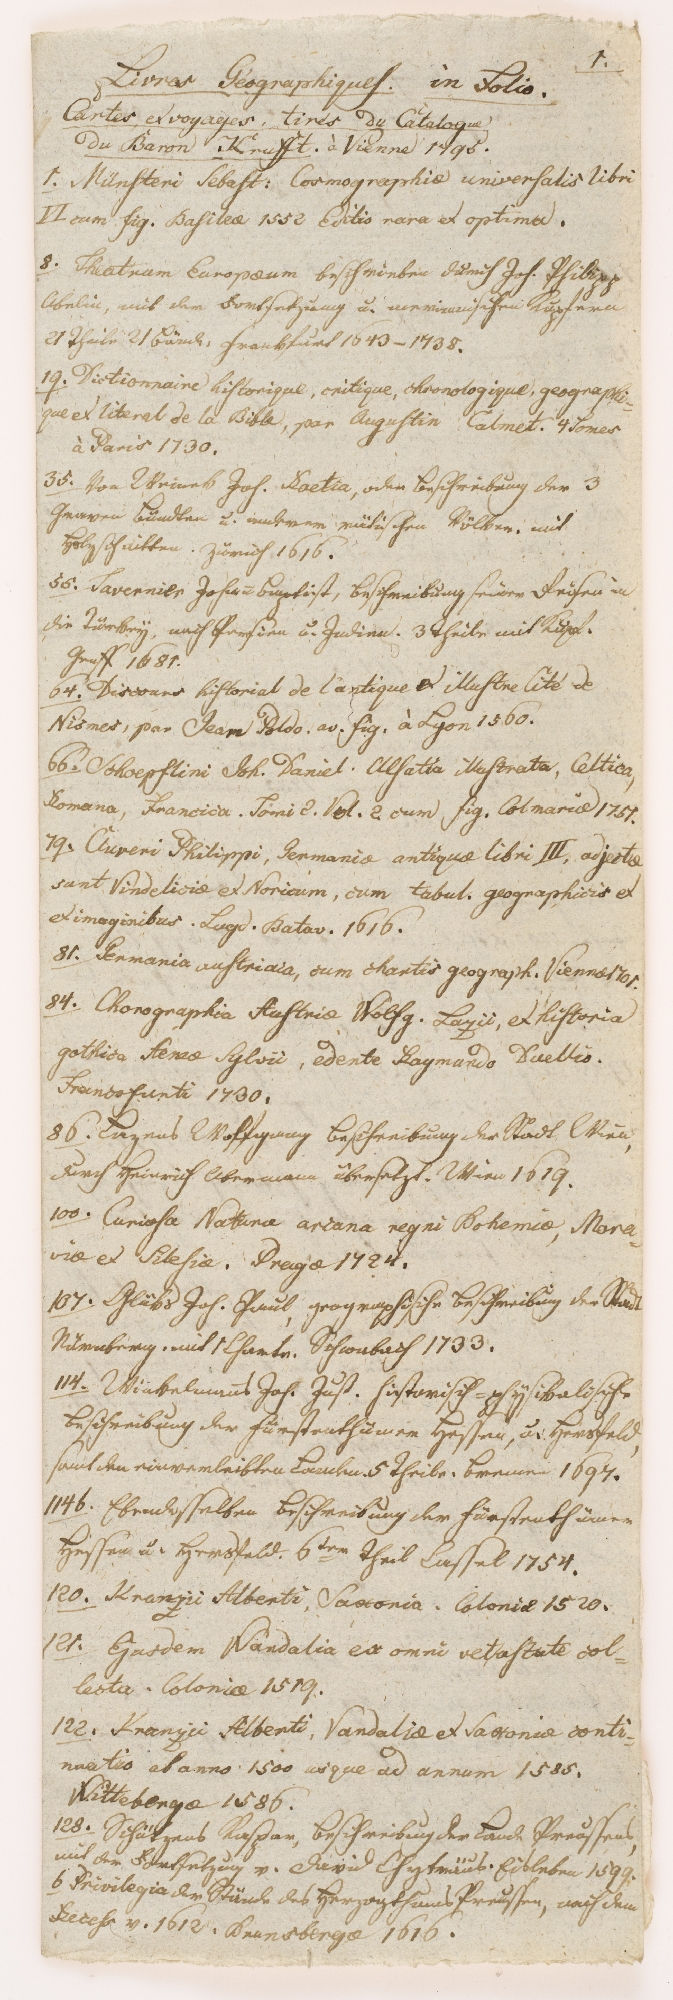 1.
Livres Géographiques. in Folio.
Cartes et voyages, tirés du Catalogue
du Baron Krufft. à Vienne 1795.
1. Münsteri Sebast: Cosmographiæ universalis libri
VI cum fig. Basileæ 1552 Editio rara et optima.
8. Theatrum Europæum beschrieben durch Joh. Philipp
Abelin, mit der Fortsetzung u. merianischen Kupfern
21 Theile 21 Bände, Frankfurt 1643–1738.
19. Dictionnaire historique, critique, chronologique, geographi-
que et literal de la Bible, par Augustin Calmet. 4 Tomes
à Paris 1730.
35. Von Weineck Joh. Raetia, oder Beschreibung der 3
Grauen Bündten u. anderer rätischen Völker. mit
Holzschnitten. Zürich 1616.
55. Tavernier Johañ Baptist, Beschreibung seiner Reisen in
die Türkey, nach Persien u. Indien. 3 Theile mit Kupf.
Genff 1681.
64. Discours historial de l'antique et illustre Cité de
Nismes, par Jean Poldo. av. fig. à Lyon 1560.
66. Schoepflini Joh. Daniel. Alsatia illustrata, Celtica,
Romana, Francica. Tomi 2. Vol. 2 cum fig. Colmariæ 1751.
79. Cluveri Philippi, Germaniæ antiquæ libri III, adjectæ
sunt Vindeliciæ et Noricum, cum tabul. geographicis et
et imaginibus. Lugd. Batav. 1616.
81. Germania austriaca, cum chartis geograph. Viennæ 1701.
84. Chorographia Austriæ Wolfg. Lazii, et historia
gothica Aeneæ Sylvii, edente Raymundo Duellio.
Francofurti 1730.
86. Lazens Wolfgang Beschreibung der Stadt Wien,
durch Heinrich Abermann übersetzt. Wien 1619.
100. Curiosa Naturæ arcana regni Bohemiæ, Mora-
viæ et Silesiæ. Pragæ 1724.
107. Joh. Paul, geographische Beschreibung der Stadt
Nürnberg. mit 1 Charte. Schwabach 1733.
114. Winkelmanns Joh. Just. historisch-physikalische
Beschreibung der Fürstenthümer Hessen, u. Hersfeld,
samt den einverleibten Landen. 5 Theile. Bremen 1697.
114b. Ebendesselben Beschreibung der Fürstenthümer
Hessen u. Hersfeld. 6ter Theil Cassel 1754.
120. Kranzii Alberti, Saxonia. Coloniæ 1520.
121. Ejusdem Wandalia ex omni vetustate col-
lecta. Coloniæ 1519.
122. Kranzii Alberti, Vandaliæ et Saxoniæ conti-
nuatio ab anno 1500 usque ad annum 1585.
Wittebergæ 1586.
128. Schützens Kaspar, Beschreibung der Lande Preussens,
mit der Fortsetzung v. David Chyträus. Eisleben 1599.
6 Privilegia der Stände des Herzogthums Preussen, nach dem
Recess v. 1612. Brunsbergæ 1616.